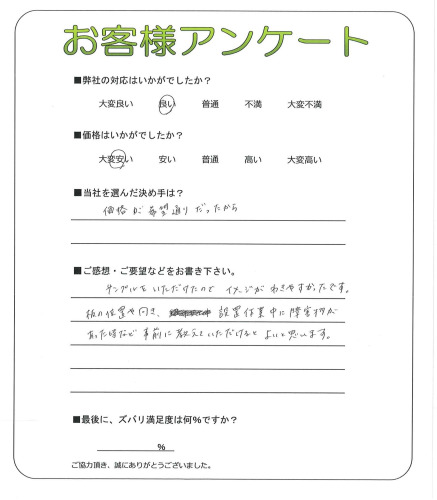 お客様アンケート
■弊社の対応はいかがでしたか？
大変良い 良い 普通 不満 大変不満
■価格はいかがでしたか？
大変安い 安い 普通 高い 大変高い
■当社を選んだ決め手は？
価格が希望通りだったから
■ご感想・ご要望などをお書き下さい。
サンプルをいただけたので イメージがわきやすかったです。
板の位置や向き、 設置作業中に障害物が
あった時など事前に教えていただけるとよいと思います。
■最後に、ズバリ満足度は何%ですか？
%
ご協力頂き、誠にありがとうございました。